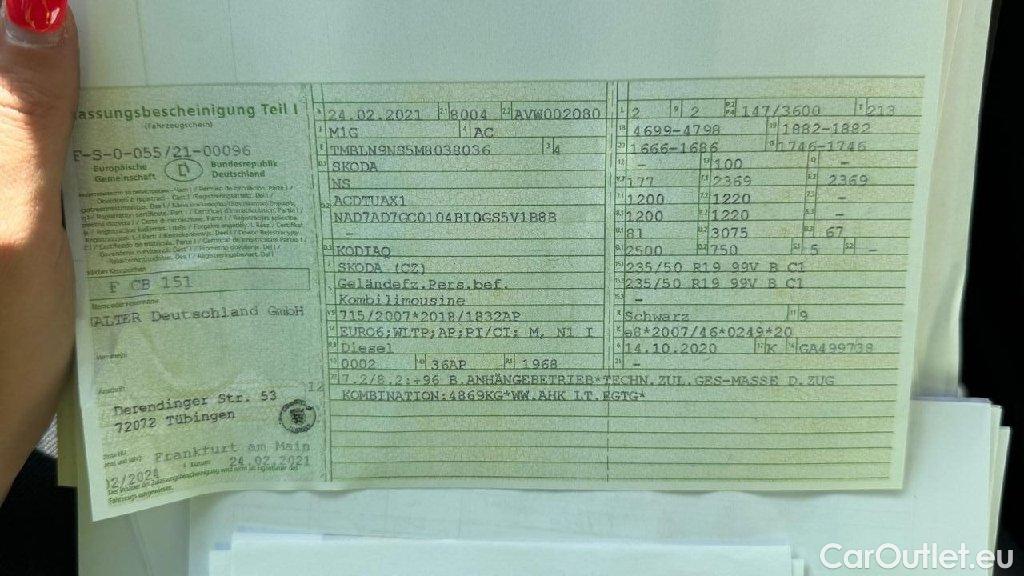 assungsbescheinigung Teil I
(Fahrzeugschein)
F-S-0-055/21-00096
Europäische Gemeinschaft
D
Bundesrepublik Deutschland
F CB 151
ALTER Deutschland GmbH
12
Derendinger Str. 53
72072 Tübingen
Frankfurt am Main
24.02.2021
02/2024
24.02.2021 8004 AVW002080
M1G AC
TMBLN9NS5M8038036 4
SKODA
NS
ACDTUAX1
NAD7AD7GC0104BIQGS5V1B8B
-
KODIAQ
SKODA (CZ)
Geländefz.Pers.bef.
Kombilimousine
715/2007*2018/1832AP
EURO6;WLTP;AP;PI/CI: M, N1 I
Diesel
0002 36AP 1968
2 2 147/3600 213
4699-4798 1882-1882
1666-1686 1746-1746
- 100 -
177 2369 2369
1200 1220 -
1200 1220 -
81 3075 67
2500 750 5 -
235/50 R19 99V B C1
235/50 R19 99V B C1
-
Schwarz 9
e8*2007/46*0249*20
14.10.2020 K GA499738
-
7.2/8.2:+96 B.ANHÄNGEBETRIEB*TECHN.ZUL.GES-MASSE D.ZUG
KOMBINATION:4869KG*WW.AHK LT.EGTG*
CarOutlet.eu